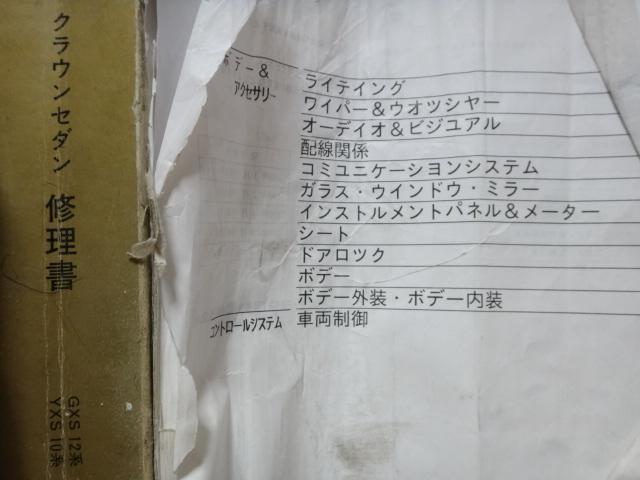 クラウンセダン 修理書
GXS 12系
YXS 10系
ボデー&
アクセサリー
ライテイング
ワイパー&ウオツシヤー
オーデイオ&ビジユアル
配線関係
コミユニケーシヨンシステム
ガラス・ウインドウ・ミラー
インストルメントパネル&メーター
シート
ドアロツク
ボデー
ボデー外装・ボデー内装
コントロールシステム 車両制御